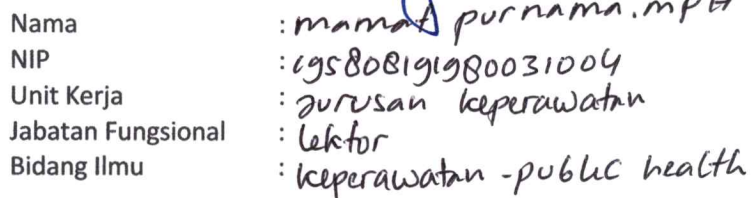 Nama : mamat purnama.mpH
NIP : 195808191980031004
Unit Kerja : Jurusan keperawatan
Jabatan Fungsional : lektor
Bidang Ilmu : keperawatan - public health